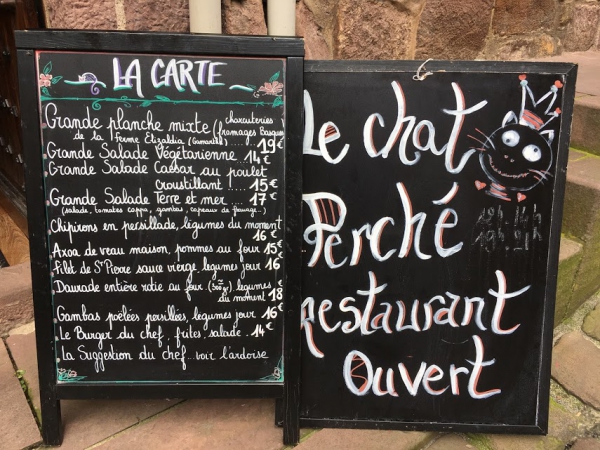 LA CARTE
Grande planche mixte (charcuteries
fromages Basques
de la Ferme Etizaldia (Gamarthe) .... 19€
Grande Salade Végétarienne 14€
Grande Salade Caesar au poulet
croustillant .... 15€
Grande Salade Terre et mer .... 17€
(salade, tomates coppa, gambas, copeaux de fromage...)
Chipirons en persillade, légumes du moment
16€
Axoa de veau maison, pommes au four 15€
Filet de St Pierre sauce vierge, légumes jour 16€
Daurade entière rotie au four (300gr) legumes
du moment 18€
Gambas poêlées persillés, légumes jour 16€
Le Burger du chef, frites, salade. 14€
La Suggestion du chef... voir l'ardoise
Le chat
Perché
18h 21h
Restaurant
Ouvert